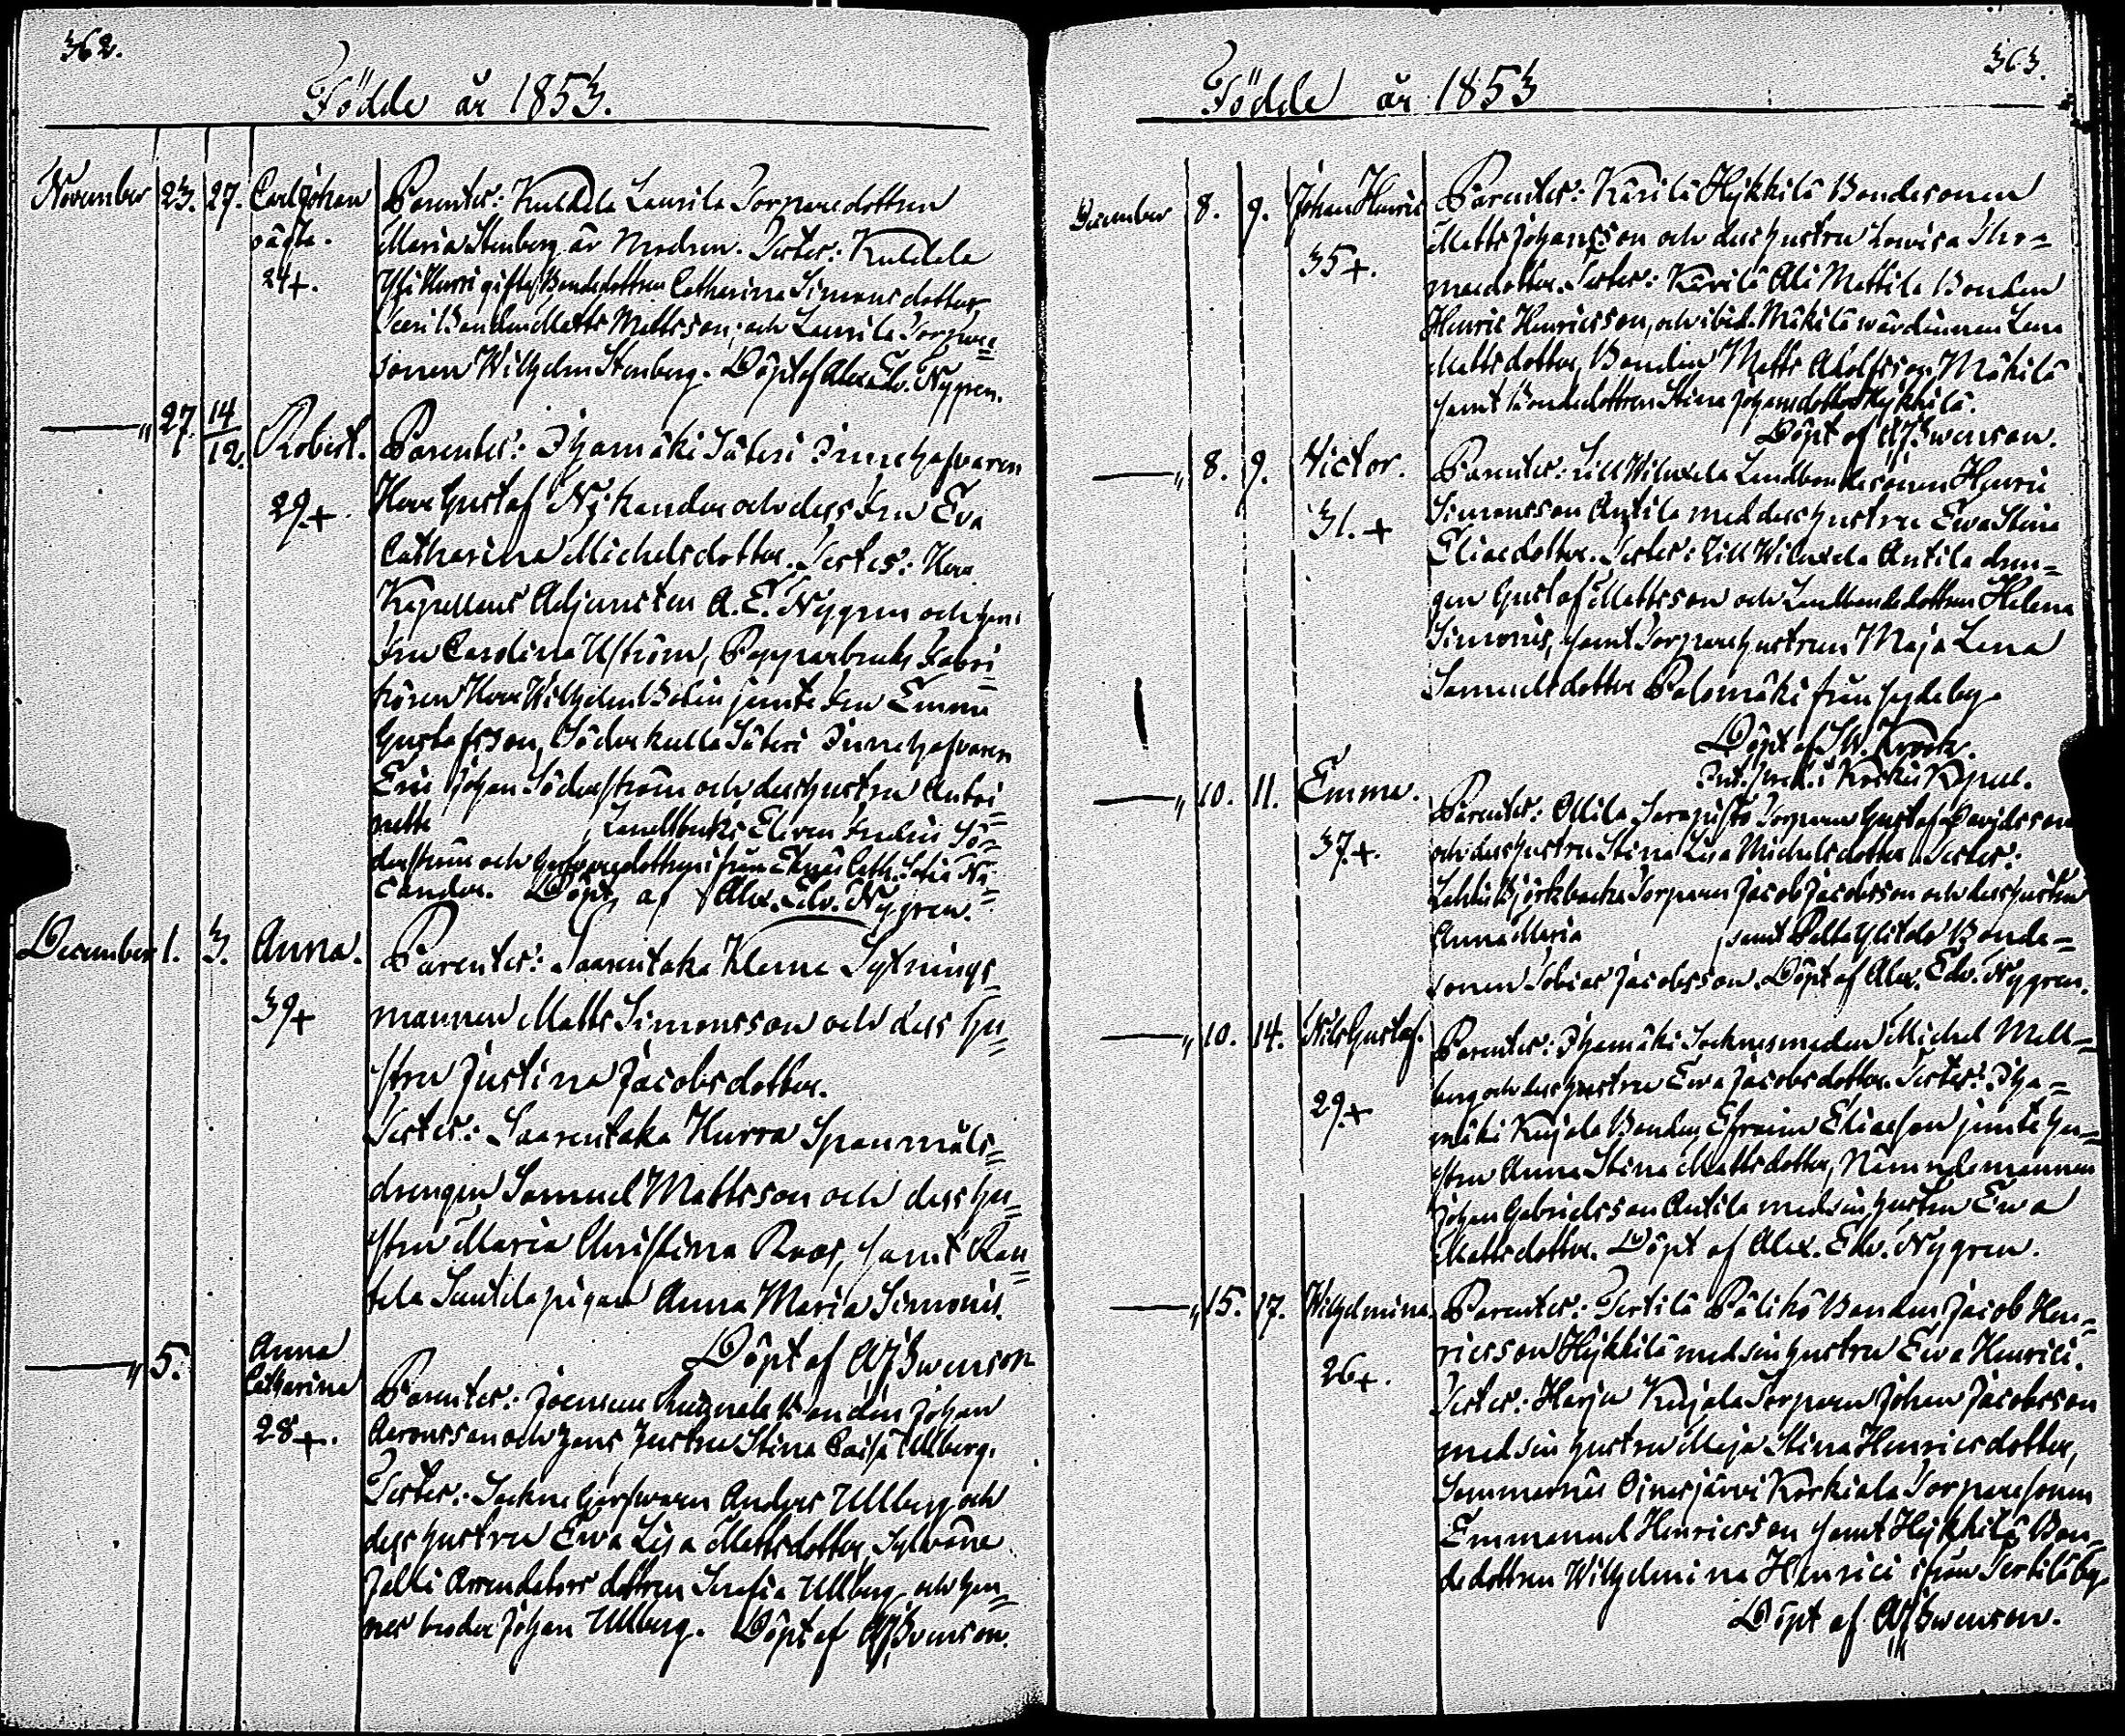 362.
Födde år 1853.
November 23. 27. Carl Johan Parentes: Kuldela Laurila Torparedottren
oägta. Maria Stenberg är modren. Testes: Kuldela
24+. Yli Hurri gifte Bondedottren Catharina Simons dotter,
Bonden Matts Mattsson, och Laurila Torpare=
sonen Wilhelm Stenberg. Döpt af Alex. Edv. Nygren.
—„ 27. 14/12. Robert. Parentes: Ihamäki Säteri Innehafvaren
29.+. Herr Gustaf Nykander och dess Fru Eva
Catharina Michelsdotter. Testes: Herr
Kapellans Adjuncten A. E. Nygren och hans
Fru Carolina Uström, Pappersbruks Fabri=
kören Herr Wilhelm Bolin jemte Fru Emma
Gustafsson, Söderkulla Säteri Innehafvaren
Eric Johan Söderström och dess hustru Antoi=
nette , Landtbruks Eleven Sö=
derström och dottren ifrån Cath. Sofia Ny=
cander. Döpt af Alex. Edv. Nygren.
December 1. 3. Anna. Parentes: Saarentaka Kleme Sytnings
39+ mannen Matts Simonsson och dess hu=
stru Justina Jacobsdotter.
Testes: Saarentaka Hurra Spanmåls=
drengen Samuel Mattsson och dess hu=
stru Maria Christina Roos, samt Ran=
tela Santila pigan Anna Maria Simonis.
Döpt af AJSwenson
—„ 5. Anna
Catharina Parentes: Joensuu Bonden Johan
28+. Aaronsson och hans hustru Stina Caisa Ullberg.
Testes: Sockne Garfvaren Anders Ullberg och
dess hustru Ewa Lisa Mattsdotter, Sylväna
Jalli Arrendators dottren Serafia Ullberg och hen=
nes broder Johan Ullberg. Döpt af AJSwenson.
363.
Födde år 1853
December 8. 9. Johan Henric Parentes: Kärilä Hykkilä Bondesonen
35+. Matts Johansson och dess hustru Lowisa Tho=
maedotter. Testes: Kärilä Ali Mattila Bonden
Henric Henricsson, och ibid. Mäkilä wärdinnan Lena
Mattsdotter, Bonden Matts Adolfsson Mäkilä
samt Bondedottren Stina Johansdotter Hykkilä.
Döpt af AJSwenson.
—„ 8. 9. Victor. Parentes: Lill Wiluxela Landbondesonen Henric
31.+ Simonsson Antila med dess hustru Ewa Stina
Eliaedotter. Testes: Lill Wiluxela Antila dren=
gen Gustaf Mattsson och Landbondedottren Helena
Simonis, samt Torparehustrun Maja Lena
Samuelsdotter Palomäki från
Döpt af
i Koskis Kapell.
—„ 10. 11. Emma. Parentes: Ollila Torparen Gustaf Davidsson
37.+. och dess hustru Stina Lisa Michelsdotter. Testes:
Björkbacka Torparen Jacob Jacobsson och dess hustru
Anna Maria , samt Palta Ylitalo Bonde=
sonen Tobias Jacobsson. Döpt af Alex. Edv. Nygren.
—„ 10. 14. Nils Gustaf. Parentes: Ihamäki Socknesmeden Michel Mell=
29.+ berg och dess hustru Ewa Jacobsdotter. Testes: Iha=
mäki Kujala Bonden Efraim Eliaeson jemte hu=
stru Anna Stina Mattsdotter, Nämndemannen
Johan Gabrielsson Antila med sin hustru Ewa
Mattsdotter. Döpt af Alex. Edv. Nygren.
—„ 15. 17. Wilhelmina. Parentes: Tertilä Pälikö Bonden Jacob Hen=
26+. ricsson Hykkilä med sin hustru Ewa Henrici.
Testes: Harju Kujala Torparen Johan Jacobsson
med sin hustru Maja Stina Henricsdotter,
Sommarnäs Oinasjärvi Korkiala Torparesonen
Emmanuel Henricsson samt Hykkilä Bon=
dedottren Wilhelmina Henrici ifrån Tertilä by.
Döpt af AJSwenson.